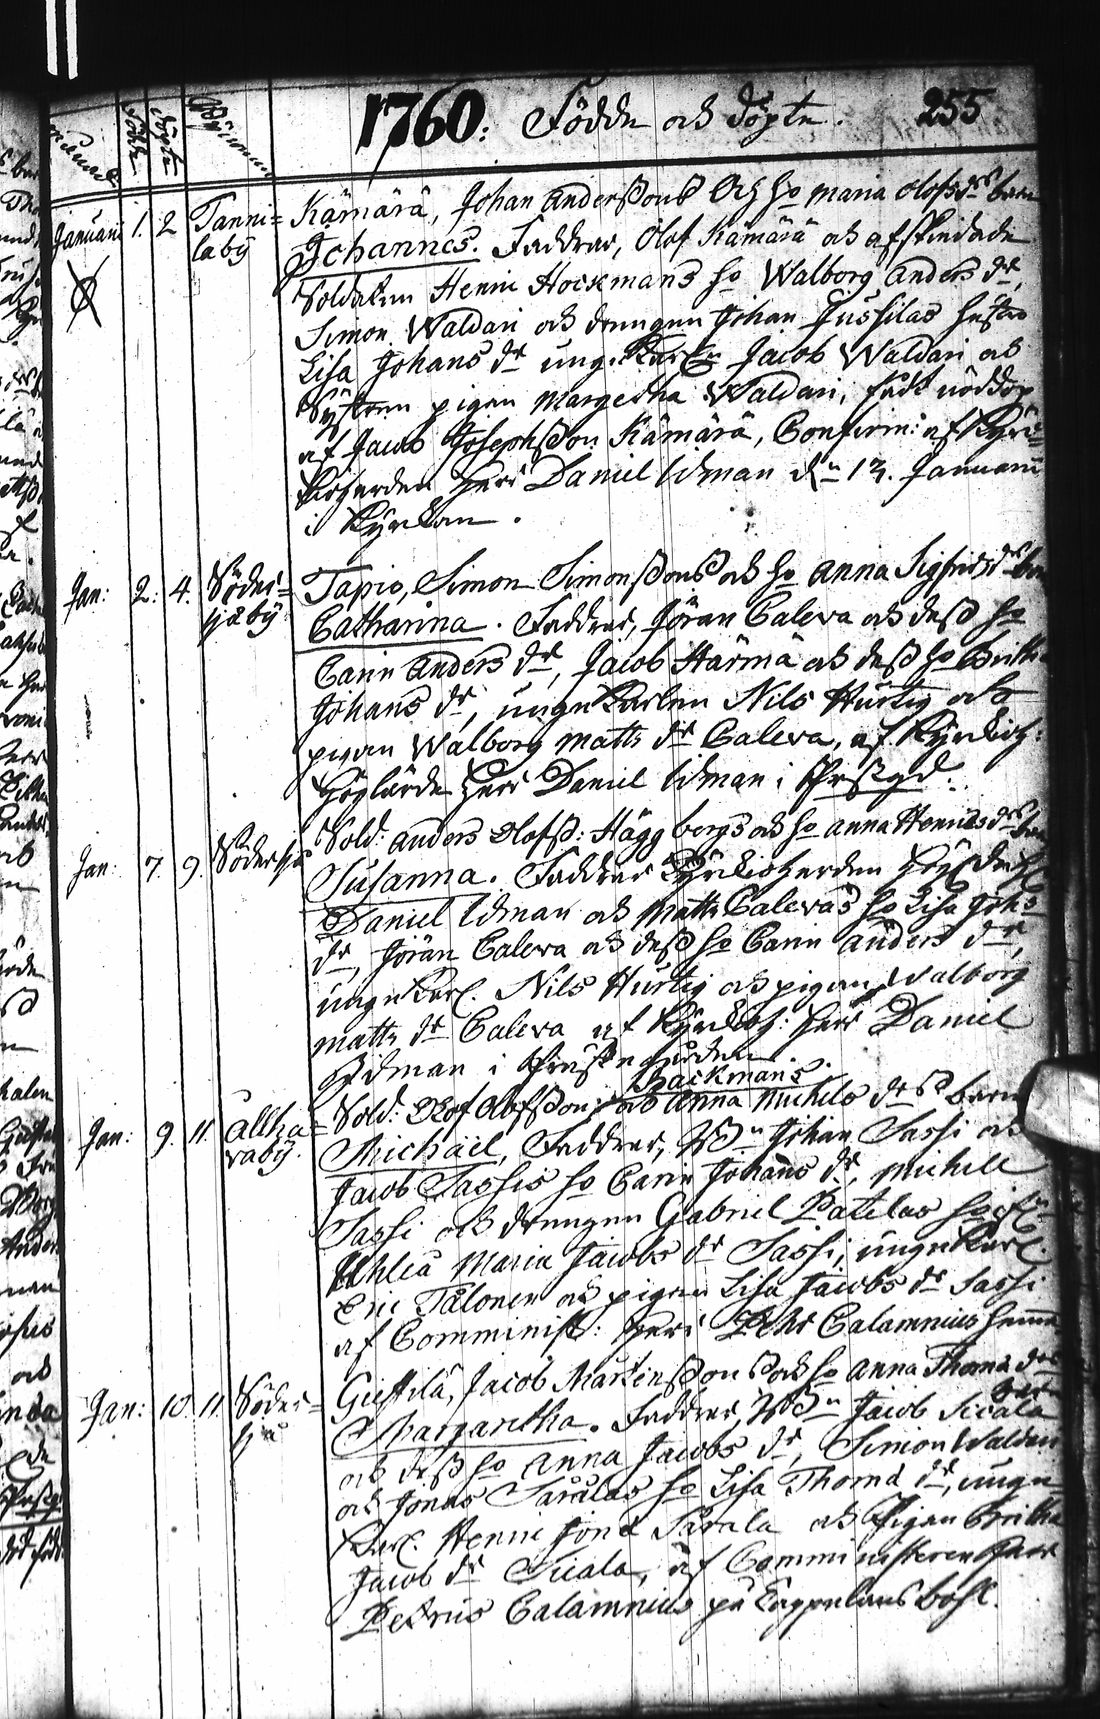 1760: Födde och döpte. 255
Månad födde döpte Byarna
Januarii 1. 2 Tanni= Kämärä, Johan Anderssons och ho Maria Olofs dr barn
la by Johannes. Faddrar, Olof Kämärä och afskedade
Soldaten Henric Hockmans ho Walborg Anders dr,
Simon Waldari och drengen Johan Jussilas hustru
Lisa Johans dr unge Karlen Jacob Waldari och
Systren pigan Margetha Waldari, fådt nöddop
af Jacob Josephsson Kämärä, Confirm: af Kyrc=
kioherden Herr Daniel Idman dn 13. Januarii
i Kyrkan.
Jan: 2: 4. Söder= Tapio, Simon Simonssons och ho Anna Sigfrids dr barn
sjä by Catharina. Faddrar, Jöran Caleva och dess ho
Carin Anders dr, Jacob Härmä och dess ho
Johans dr, unge Karlen Nils Hurtig och
pigan Walborg Matts dr Caleva, af Kyrkioh:
Höglärde Herr Daniel Idman i Prstgd.
Jan: 7. 9. Södersjä Sold: Anders Olofss: Häggbergs och ho Anna Henrics dr barn
Susanna. Faddrar Kyrkioherden
Daniel Idman och Matts Calevas ho Lisa Johs
dr, Jöran Caleva och dess ho Carin Anders dr,
unge Karl. Nils Hurtig och pigan Walborg
Matts dr Caleva af Kyrkioh: Herr Daniel
Idman i Prästegården.
Backmans
Jan: 9. 11. Allha= Sold: Olof Olofsson och Anna Michels dr barn
ra by. Michaël, Faddrar, Johan Sassi och
Jacob Sassis ho Carin Johans dr, Michell
Sassi och drengen Gabriel Patelas
Maria Jacobs dr Sassi, unge Karl.
Eric Tålonen och pigan Lisa Jacobs dr Sassi
af Comminist: Herr Pehr Calamnius hemma
Jan: 10. 11. Söder= Giettilä, Jacob Mårtenssons och ho Anna Thoma dr
sjä barn
Margaretha. Faddrar, Jacob Sicala
och dess ho Anna Jacobs dr, Simon Waldari
och Jonas Saralas ho Lisa Thoma dr, unge
Karl. Henric Jona Särala och Pigan Britha
Jacob dr Sicala, af Comministeren Herr
Petrus Calamnius på Cappelans bohl.